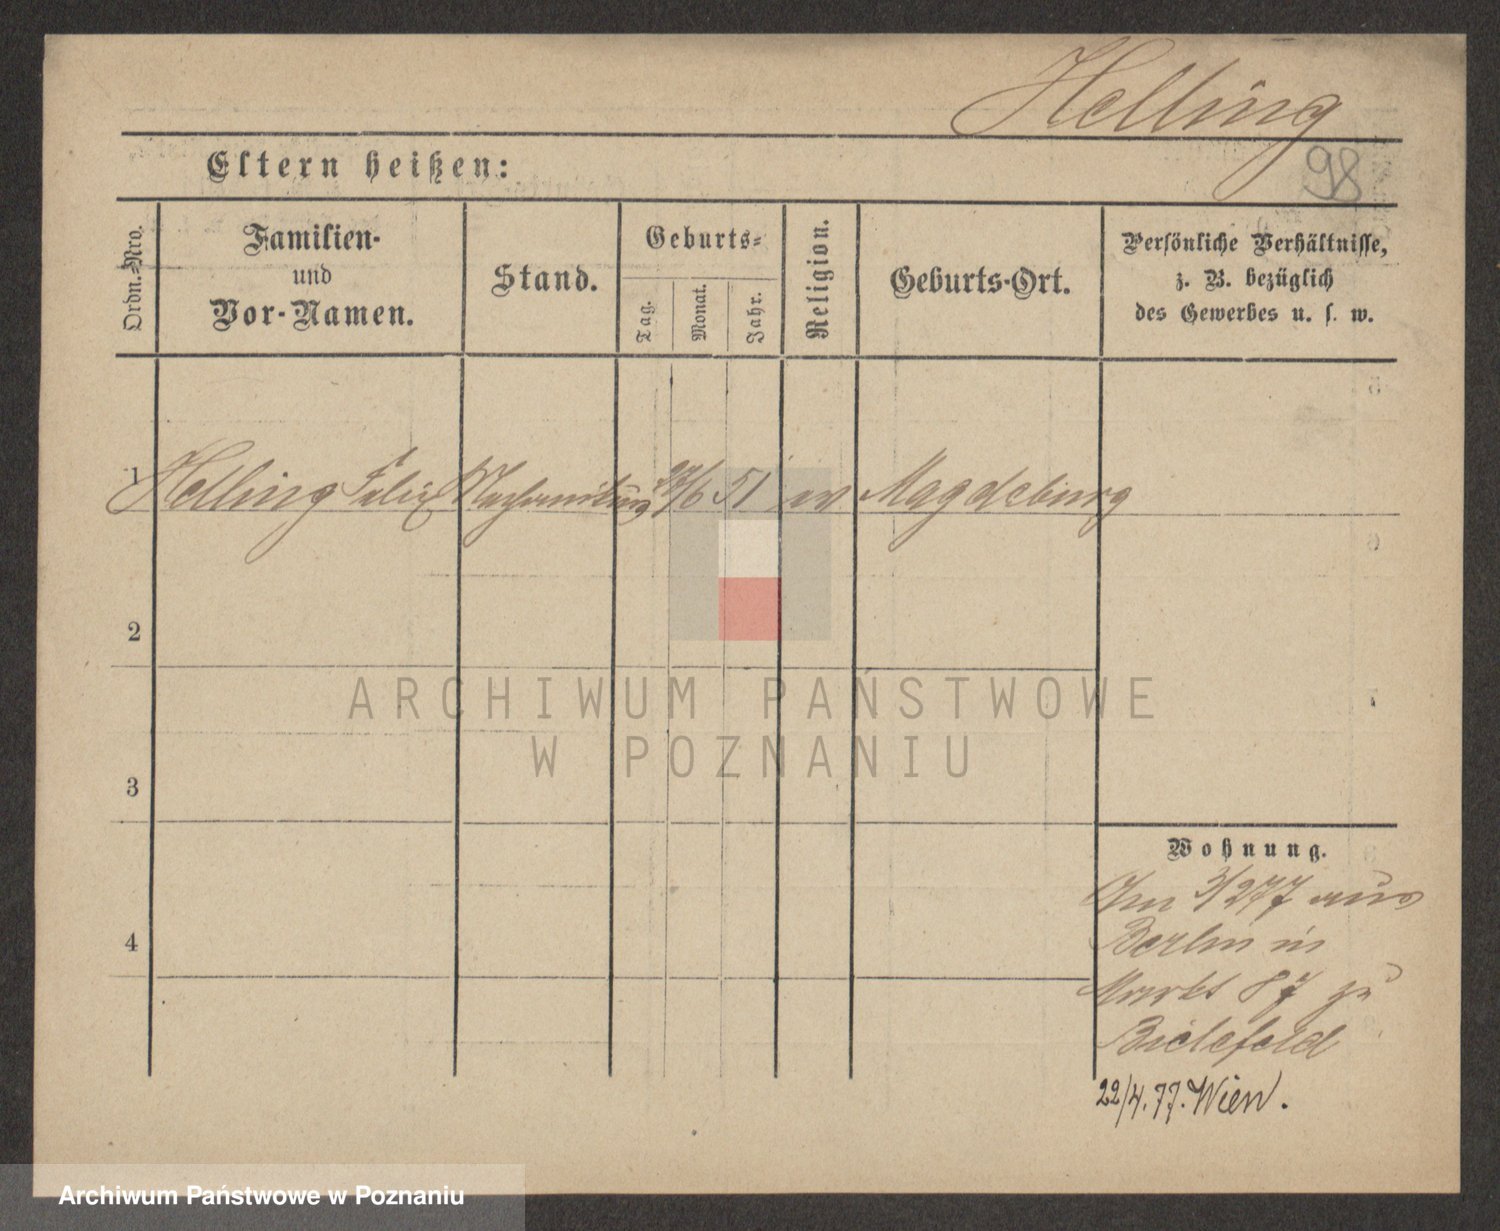 Helling
98
Eltern heißen:
Ordn.-Nro.
Familien-
und
Vor-Namen.
Stand.
Geburts-
Tag.
Monat.
Jahr.
Religion.
Geburts-Ort.
Persönliche Verhältnisse,
z. B. bezüglich
des Gewerbes u. s. w.
1 Helling Felix /6 51 ev Magdeburg
2
3
4
Wohnung.
Im 3/277 aus
Berlin in
Markt 87 zu
Bielefeld
22/4.77. Wien.
ARCHIWUM PAŃSTWOWE
W POZNANIU
Archiwum Państwowe w Poznaniu